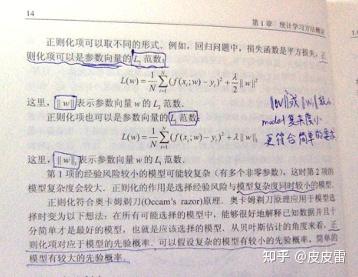 14
第1章 统计学习方法概论
正则化项可以取不同的形式. 例如, 回归问题中, 损失函数是平方损失, 正
则化项可以是参数向量的 L₂ 范数:
L(w) = 1/N ∑_{i=1}^{N} (f(x_i; w) − y_i)² + λ/2 ||w||²
这里, ||w|| 表示参数向量 w 的 L₂ 范数.
正则化项也可以是参数向量的 L₁ 范数:
L(w) = 1/N ∑_{i=1}^{N} (f(x_i; w) − y_i)² + λ ||w||₁
这里, ||w||₁ 表示参数向量 w 的 L₁ 范数.
||w||或||w||₁
model 复杂度小
更符合简单的
第 1 项的经验风险较小的模型可能较复杂 (有多个非零参数), 这时第 2 项的
模型复杂度会较大. 正则化的作用是选择经验风险与模型复杂度同时较小的模型.
正则化符合奥卡姆剃刀 (Occam's razor) 原理. 奥卡姆剃刀原理应用于模型选
择时变为以下想法: 在所有可能选择的模型中, 能够很好地解释已知数据并且十
分简单才是最好的模型, 也就是应该选择的模型. 从贝叶斯估计的角度来看, 正
则化项对应于模型的先验概率. 可以假设复杂的模型有较小的先验概率, 简单的
模型有较大的先验概率.
知乎 @皮皮雷